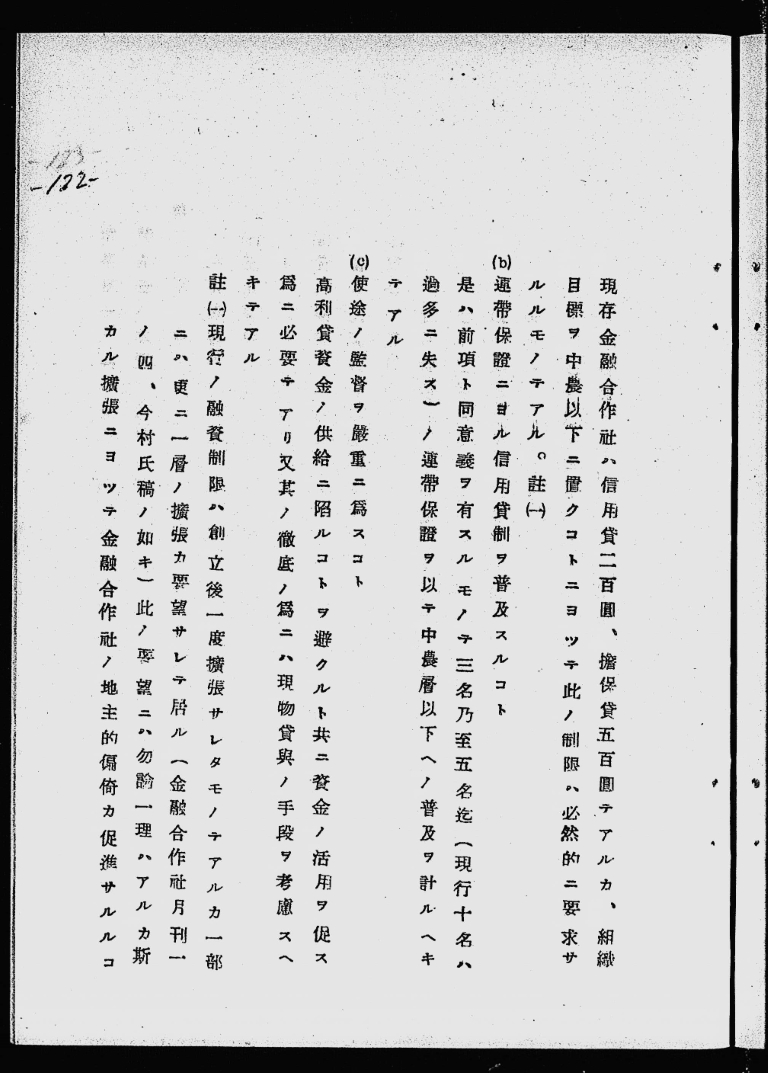 -123-
-122-
現存金融合作社ハ信用貸二百圓、擔保貸五百圓テアルカ、組織
目標ヲ中農以下ニ置クコトニヨツテ此ノ制限ハ必然的ニ要求サ
ルルモノテアル。註㈠
(b)連帶保證ニヨル信用貸制ヲ普及スルコト
是ハ前項ト同意義ヲ有スルモノテ三名乃至五名迄(現行十名ハ
過多ニ失ス)ノ連帶保證ヲ以テ中農層以下ヘノ普及ヲ計ルヘキ
テアル
(c)使途ノ監督ヲ嚴重ニ爲スコト
高利貸資金ノ供給ニ陷ルコトヲ避クルト共ニ資金ノ活用ヲ促ス
爲ニ必要テアリ又其ノ徹底ノ爲ニハ現物貸與ノ手段ヲ考慮スヘ
キテアル
註㈠現行ノ融資制限ハ創立後一度擴張サレタモノテアルカ一部
ニハ更ニ一層ノ擴張カ要望サレテ居ル(金融合作社月刊一
ノ四、今村氏稿ノ如キ)此ノ要望ニハ勿論一理ハアルカ斯
カル擴張ニヨツテ金融合作社ノ地主的偏倚カ促進サルルコ